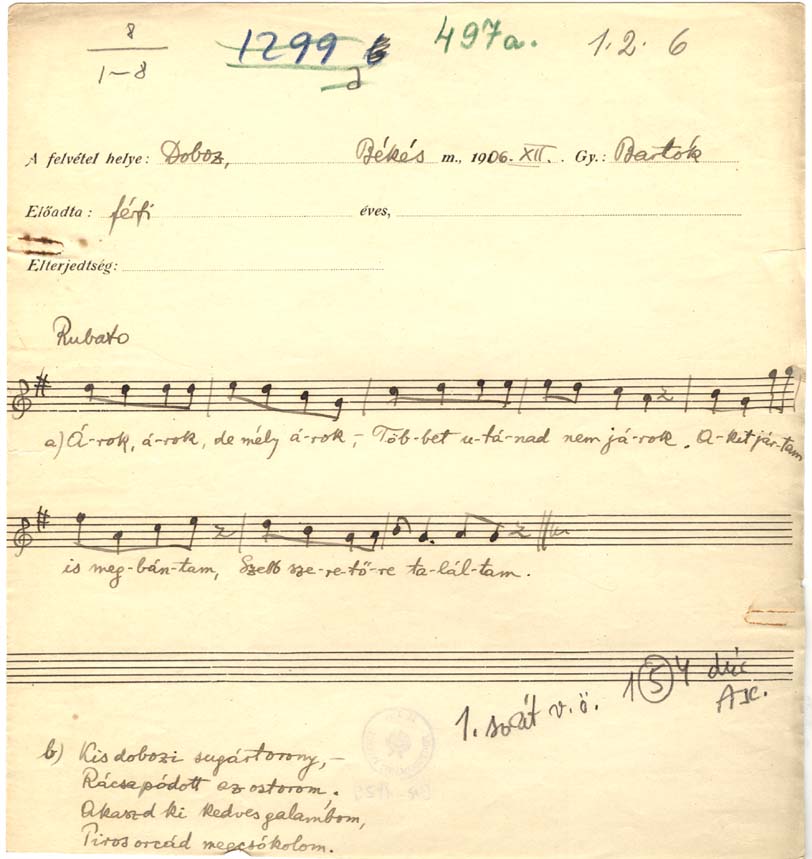 8
1-8
1299
497a.
1. 2. 6
A felvétel helye: Doboz, Békés m., 1906. XII. Gy.: Bartók
Előadta: férfi éves,
Elterjedtség:
Rubato
a) Á-rok, á-rok, de mély á-rok, – Töb-bet u-tá-nad nem já-rok. A-kit jár-tam
is meg-bán-tam, Szebb sze-re-tő-re ta-lál-tam.
1. v. ö. 1 5 4
b) Kis dobozi sugártorony, –
Rácsapódott az ostorom.
Akaszd ki kedves galambom,
Piros orcád megcsókolom.